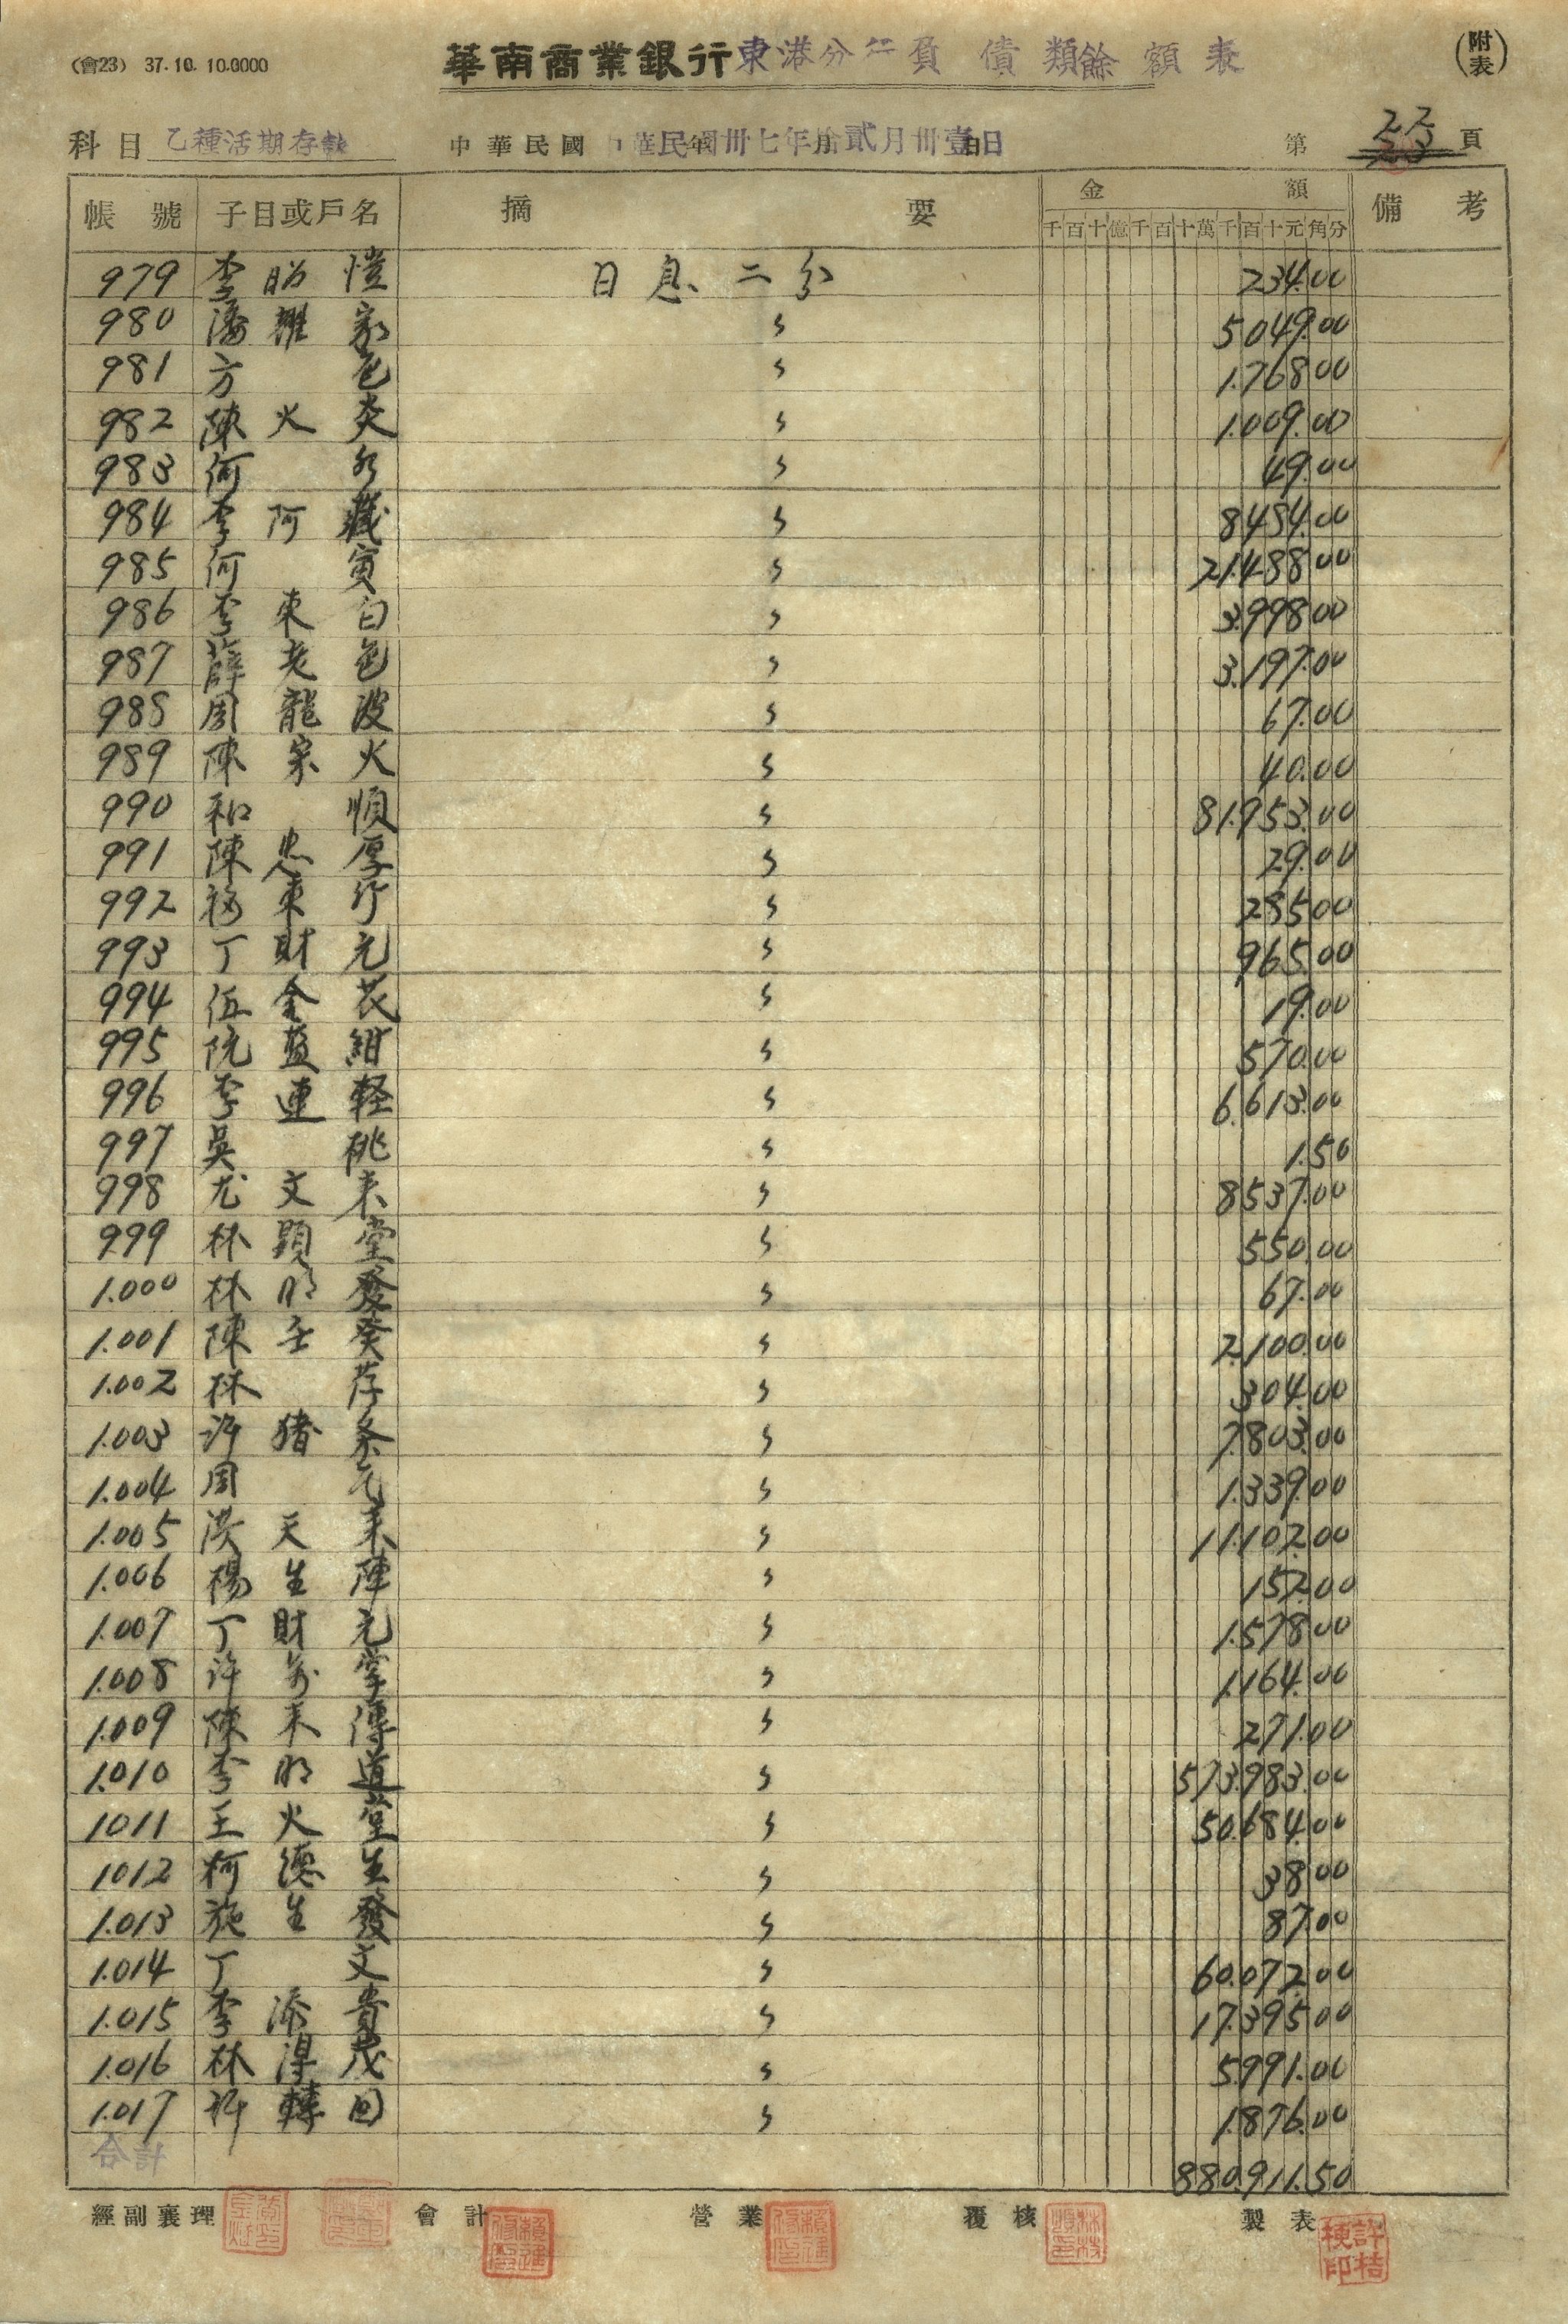 (會23) 37.10.10.0000
華南商業銀行東港分行負債類餘額表
(附表)
科目 乙種活期存款
中華民國 中華民國卅七年拾貳月卅壹日
第 22 頁
帳號 子目或戶名 摘要 金額 備考
千百十億千百十萬千百十元角分
979 李昭愷 日息二分 234.00
980 潘耀家 〃 5.049.00
981 方色 〃 1.768.00
982 陳火炎 〃 1.009.00
983 何 〃 49.00
984 李阿藏 〃 8484.00
985 何寅 〃 21.488.00
986 李來白 〃 3.998.00
987 薛老色 〃 3.197.00
988 周龍波 〃 67.00
989 陳宗火 〃 40.00
990 和順 〃 81.953.00
991 陳忠厚 〃 29.00
992 東行 〃 285.00
993 丁財元 〃 965.00
994 伍金花 〃 19.00
995 阮藍紺 〃 570.00
996 李連軽 〃 6.613.00
997 吳桃 〃 1.50
998 尤文来 〃 8537.00
999 林顕堂 〃 550.00
1.000 林明發 〃 67.00
1.001 陳壬癸 〃 2.100.00
1.002 林荐 〃 304.00
1.003 許猪条 〃 7.803.00
1.004 周 〃 1.339.00
1.005 洪天来 〃 11.102.00
1.006 楊生陣 〃 152.00
1.007 丁財元 〃 1.578.00
1.008 許掌 〃 1.164.00
1.009 陳来傳 〃 271.00
1.010 李明道 〃 573.983.00
1011 王火堂 〃 50.684.00
1012 柯德生 〃 38.00
1.013 施生發 〃 87.00
1.014 丁文 〃 60.072.00
1.015 李添貴 〃 17.395.00
1.016 林淂茂 〃 5.991.00
1.017 許轉回 〃 1.876.00
880.911.50
經副襄理 會計 營業 覆核 製表